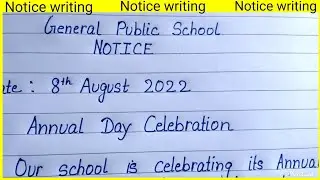 Notice writing Notice writing Notice writing
General Public School
NOTICE
te : 8th August 2022
Annual Day Celebration
Our school is celebrating its Annua